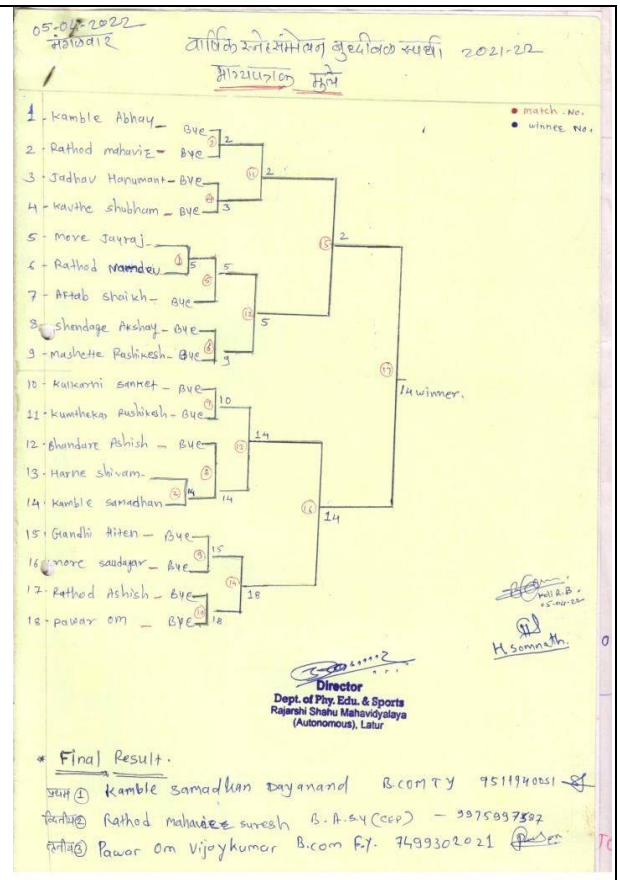 05-04-2022
मंगळवार
वार्षिक स्नेहसंमेलन बुध्दीबळ स्पर्धा 2021-22
भाग्यपत्रक मुले
match No.
winner No.
1 - Kamble Abhay - Bye
2 - Rathod mahavir - Bye
3 - Jadhav Hanumant - Bye
4 - Kavthe shubham - Bye
5 - More Jayraj
6 - Rathod Namdev
7 - Aftab shaikh - Bye
8 - shendage Akshay - Bye
9 - Mashette Rashikesh - Bye
10 - Kulkarni sanket - Bye
11 - Kumthekar Rushikesh - Bye
12 - Bhandare Ashish - Bye
13 - Harne shivam
14 - Kamble samadhan
15 - Gandhi Hiten - Bye
16 more saudagar - Bye
17 - Rathod Ashish - Bye
18 - pawar om - Bye
2
3
5
5
9
10
14
14
15
18
2
5
14
18
2
14
14 winner.
05-04-22
H Somnath.
Director
Dept. of Phy. Edu. & Sports
Rajarshi Shahu Mahavidyalaya
(Autonomous), Latur
* Final Result.
प्रथम ① Kamble Samadhan Dayanand B.COM TY 9511940051
द्वितीय ② Rathod mahavir suresh B.A.SY (CEP) - 9975997587
तृतीय ③ Pawar Om Vijaykumar B.com F.Y. 7499302021